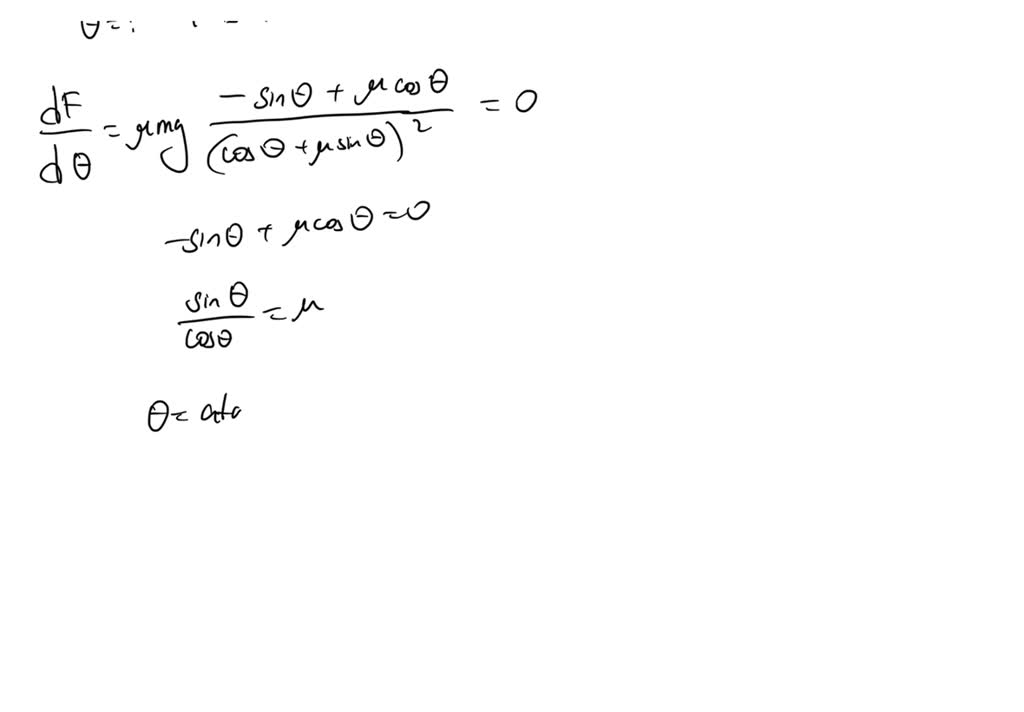 dF/dθ = μmg (−sinθ + μcosθ)/(cosθ + μsinθ)² = 0
−sinθ + μcosθ = 0
sinθ/cosθ = μ
θ = ata